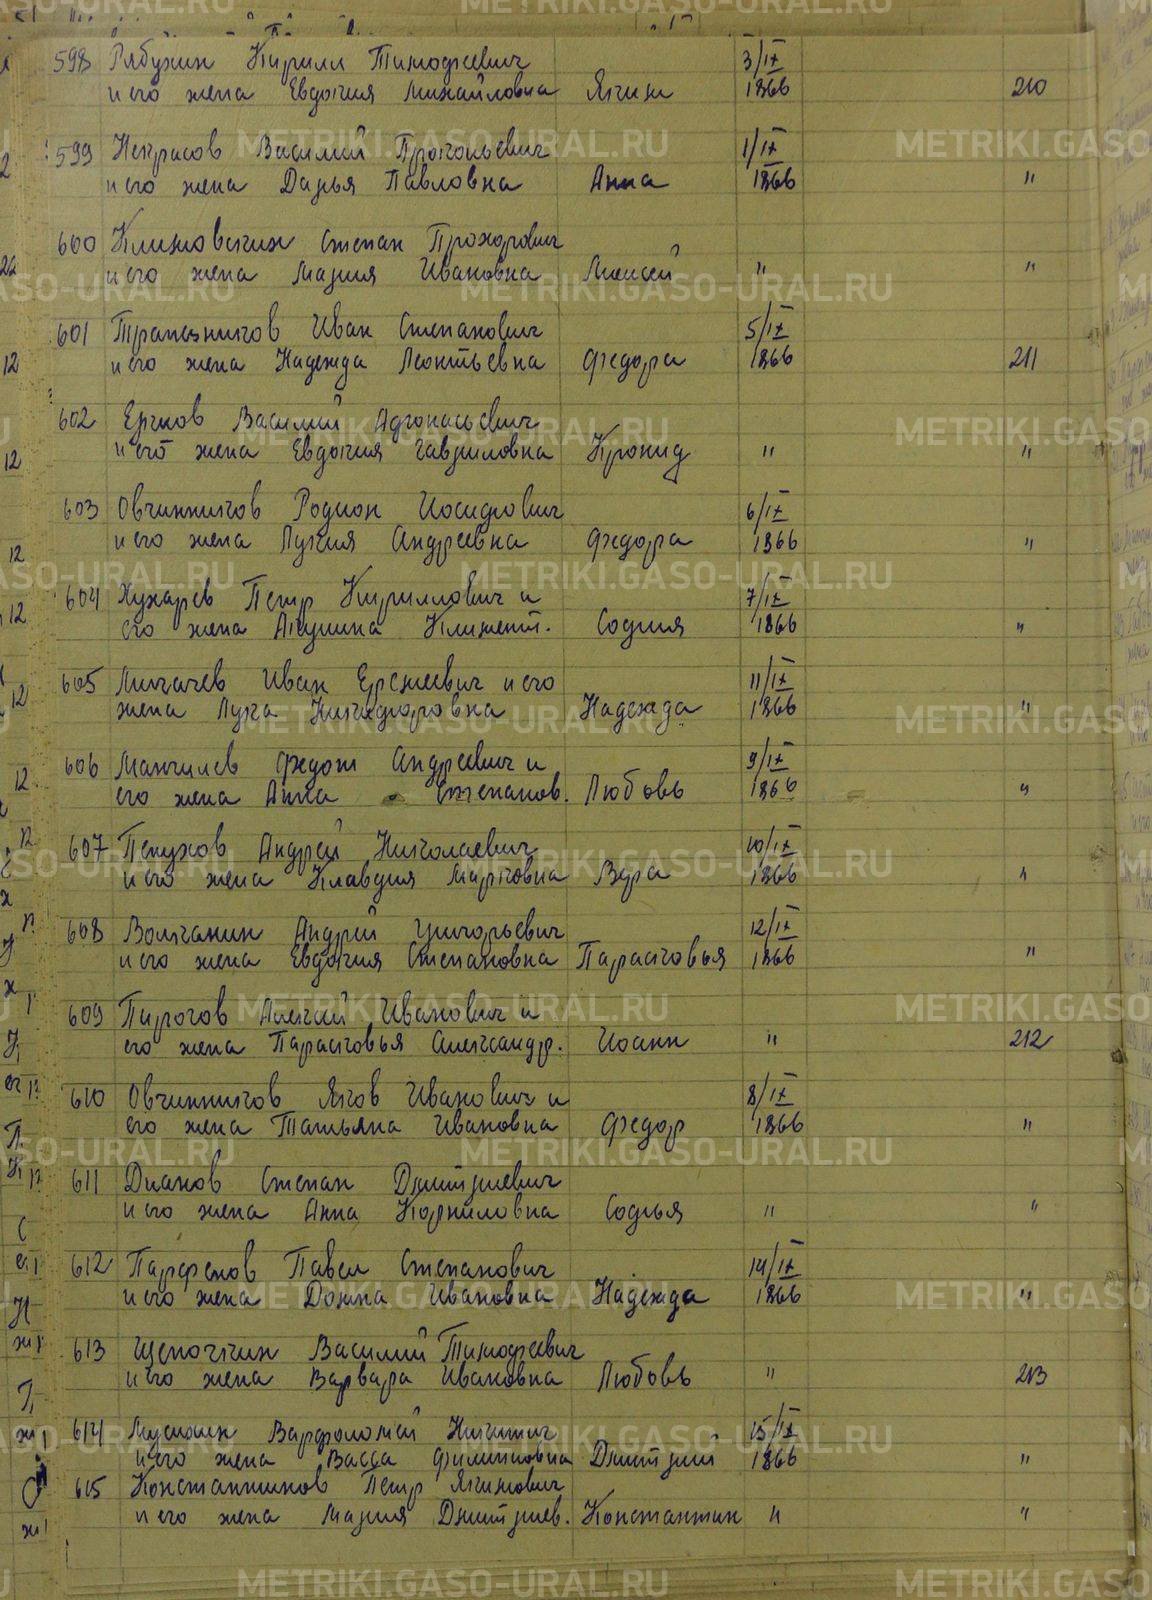 598 Рябухин Кирилл Тимофеевич 3/IX
и его жена Евдокия Михайловна Яким 1866 210
599 Некрасов Василий Прокопьевич 1/IX
и его жена Дарья Павловна Анна 1866 "
600 Климовских Степан Прохорович
и его жена Мария Ивановна Моисей " "
601 Трапезников Иван Степанович 5/IX
и его жена Надежда Леонтьевна Федора 1866 211
602 Василий Афонасьевич
и его жена Евдокия Гавриловна Кронид " "
603 Овчинников Родион Иосифович 6/IX
и его жена Лукия Андреевна Федора 1866 "
604 Кухарев Петр Кириллович и 7/IX
его жена Акулина Климент. София 1866 "
605 Лихачев Иван Ермеевич и его 11/IX
жена Лука Никифоровна Надежда 1866 "
606 Мангилев Федот Андреевич и 9/IX
его жена Анна Степанов. Любовь 1866 "
607 Пенухов Андрей Николаевич 10/IX
и его жена Клавдия Марковна Вера 1866 "
608 Волчанин Андрей Григорьевич 12/IX
и его жена Евдокия Степановна Парасковья 1866 "
609 Пирогов Алексей Иванович и
его жена Парасковья Александр. Иоанн " 212
610 Овчинников Яков Иванович и 8/IX
его жена Татьяна Ивановна Федор 1866 "
611 Дианов Степан Дмитриевич
и его жена Анна Корниловна Софья " "
612 Парфенов Павел Степанович 14/IX
и его жена Домна Ивановна Надежда 1866 "
613 Щепочкин Василий Тимофеевич
и его жена Варвара Ивановна Любовь " 213
614 Варфоломей Никитич 15/IX
и его жена Васса Филипповна Дмитрий 1866 "
615 Константинов Петр Якимович
и его жена Мария Дмитриев. Константин " "
METRIKI.GASO-URAL.RU